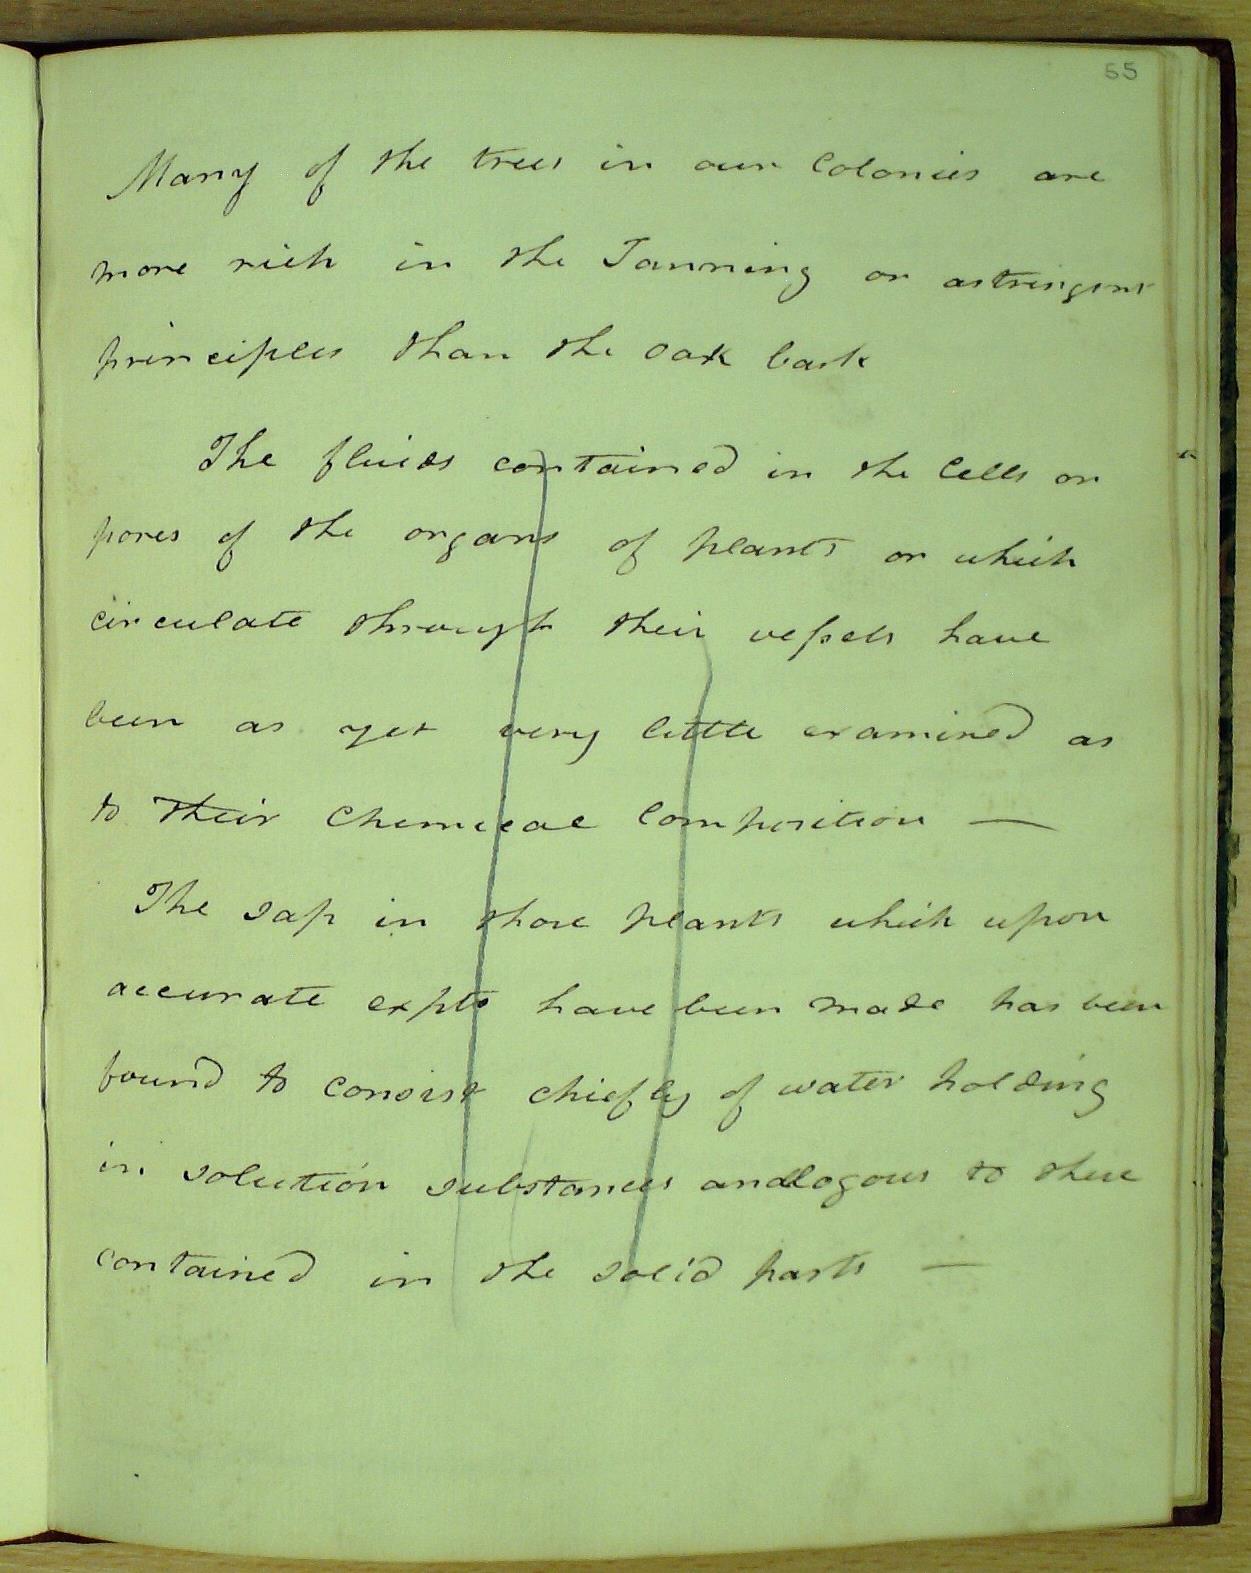 55
Many of the trees in our Colonies are
more rich in the Tanning or astringent
principles than the oak bark
The fluids contained in the Cells or
pores of the organs of plants or which
circulate through their vessels have
been as yet very little examined as
to their Chemical Composition —
The sap in those plants which upon
accurate expts have been made has been
found to consist chiefly of water holding
in solution substances analogous to those
contained in the solid parts —